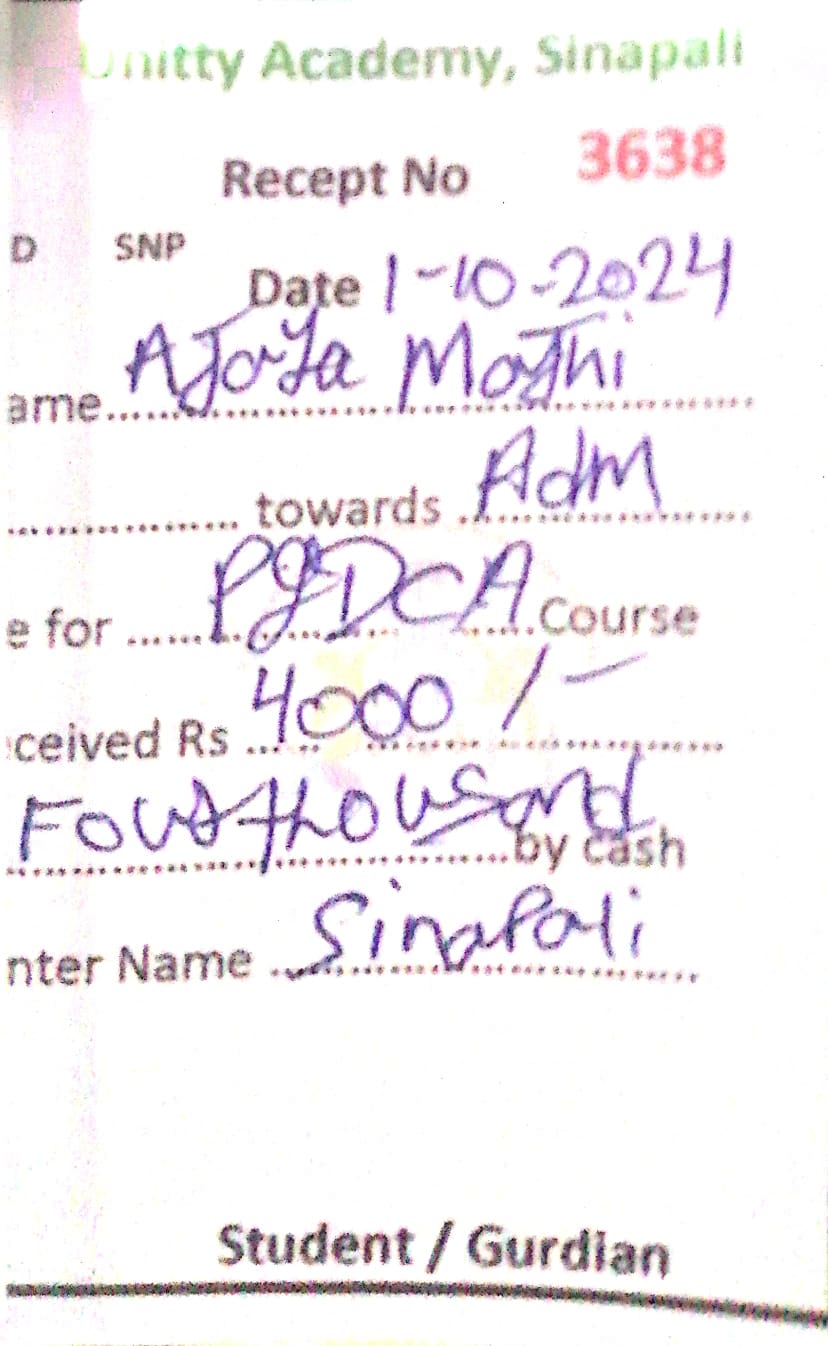 Unitty Academy, Sinapali
Recept No 3638
D SNP
Date 1-10-2024
ame Ajaya Majhi
towards Adm
e for PGDCA Course
ceived Rs 4000/-
Four thousand by cash
nter Name Sinapali
Student / Gurdian